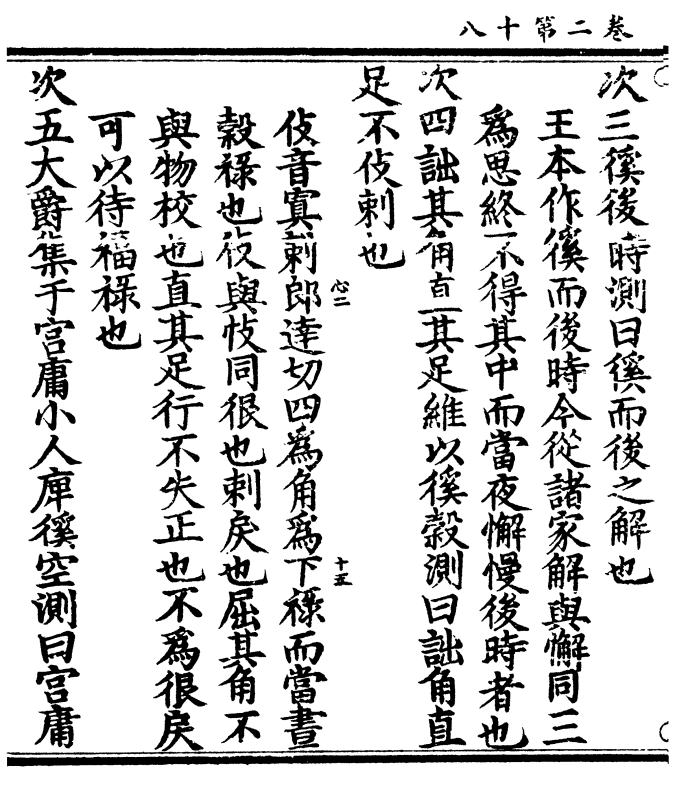 卷二第十八
次三徯後時測曰徯而後之解也
王本作徯而後時今從諸家解與懈同三
爲思終不得其中而當夜懈慢後時者也
次四詘其角直其足維以徯穀測曰詘角直
足不伎刺也
伎音寘刺郎達切四爲角爲下祿而當晝
心二
十五
穀祿也伎與忮同很也刺戾也屈其角不
與物校也直其足行不失正也不爲很戾
可以待福祿也
次五大爵集于宮庸小人庳徯空測曰宮庸